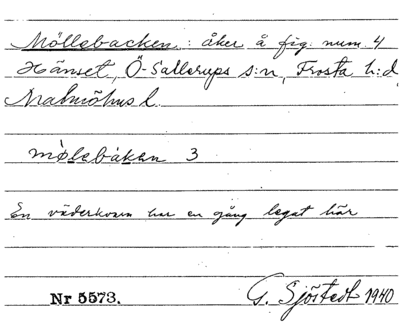 Möllebacken: åker å fig. num. 4
Hänset, Ö-Sallerups s:n, Frosta h:d
Malmöhus l.
møl̥ebakan 3
En väderkvarn har en gång legat här
Nr 5573. G. Sjöstedt 1940